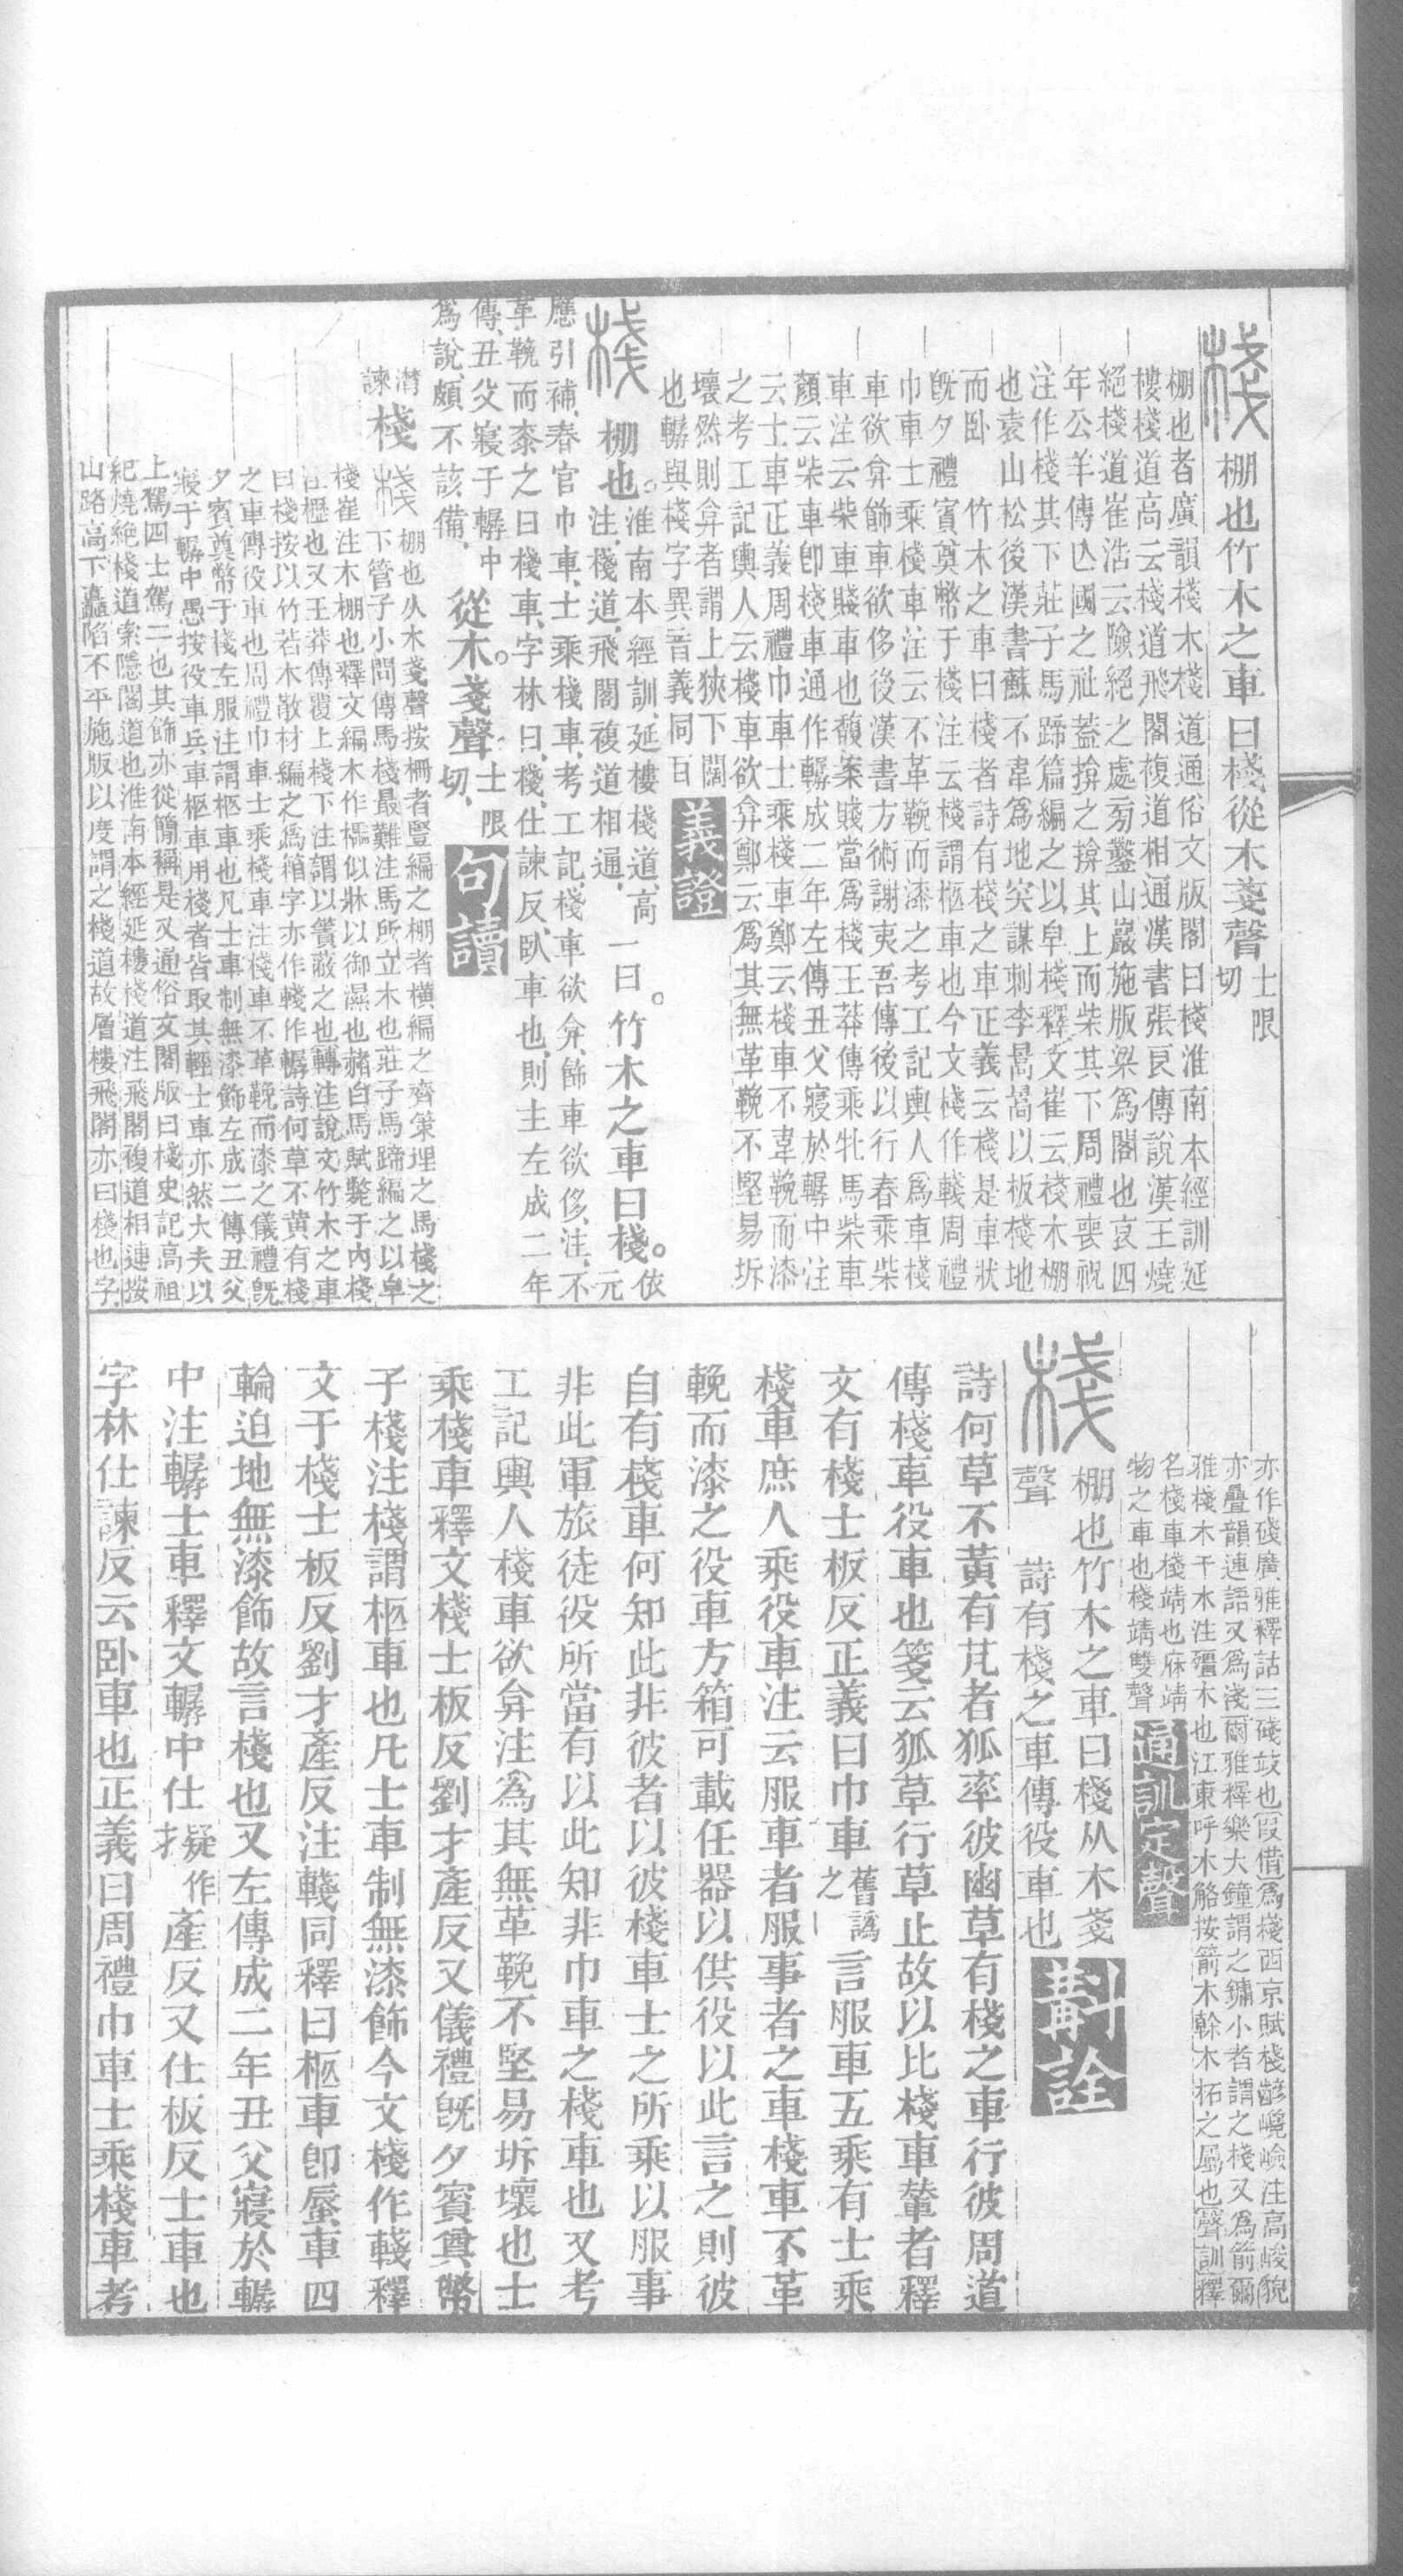 棧棚也竹木之車曰棧從木戔聲士限切
棚也者廣韻棧木棧道通俗文版閣曰棧淮南本經訓延
樓棧道高云棧道飛閣複道相通漢書張良傳說漢王燒
絕棧道崔浩云險絕之處旁鑿山巖施版梁為閣也哀四
年公羊傳亡國之社蓋揜之揜其上而柴其下周禮喪祝
注作棧其下莊子馬蹄篇編之以皁棧釋文崔云棧木棚
也袁山松後漢書蘇不韋為地突謀刺李暠暠以板棧地
而卧 竹木之車曰棧者詩有棧之車正義云棧是車狀
旣夕禮賓奠幣于棧注云棧謂柩車也今文棧作輚周禮
巾車士乘棧車注云不革鞔而漆之考工記輿人為車棧
車欲弇飾車欲侈後漢書方術謝夷吾傳後以行春乘柴
車注云柴車賤車也馥案賤當為棧王莽傳乘牝馬柴車
顏云柴車卽棧車通作轏成二年左傳丑父寢於轏中注
云士車正義周禮巾車士乘棧車鄭云棧車不韋鞔而漆
之考工記輿人云棧車欲弇鄭云為其無革鞔不堅易坼
壞然則弇者謂上狹下闊
也轏與棧字異音義同 義證
棧棚也。淮南本經訓、延樓棧道、高注、棧道、飛閣複道相通、一曰。竹木之車曰棧。依元
應引補、春官巾車、士乘棧車、考工記、棧車欲弇、飾車欲侈、注、不
革鞔而桼之曰棧車、字林曰、棧、仕諫反、臥車也、則主左成二年
傳、丑父寢于轏中
為說、頗不該備、 從木。戔聲士限切、 句讀
潸諫棧棧棚也从木戔聲按柵者豎編之棚者橫編之齊策理之馬棧之
下管子小問傅馬棧最難注馬所立木也莊子馬蹄編之以皁
棧崔注木棚也釋文編木作欞似牀以御濕也赭白馬賦斃于內棧
注櫪也又王莽傳覆上棧下注謂以簀蔽之也轉注說文竹木之車
曰棧按以竹若木散材編之為箱字亦作輚作轏詩何草不黃有棧
之車傳役車也周禮巾車士乘棧車注棧車不革鞔而漆之儀禮旣
夕賓奠幣于棧左服注謂柩車也凡士車制無漆飾左成二傳丑父
寢于轏中愚按役車兵車柩車用棧者皆取其輕士車亦然大夫以
上駕四士駕二也其飾亦從簡稱是又通俗文閣版曰棧史記高祖
紀燒絕棧道索隱閣道也淮南本經延樓棧道注飛閣複道相連按
山路高下矗陷不平施版以度謂之棧道故層樓飛閣亦曰棧也字
亦作碊廣雅釋詁三碊攱也假借為棧西京賦棧齴巉嶮注高峻貌
亦疊韻連語又為淺爾雅釋樂大鐘謂之鏞小者謂之棧又為箭爾
雅棧木干木注殭木也江東呼木觡按箭木榦木柘之屬也聲訓釋
名棧車棧靖也庥靖
物之車也棧靖雙聲 通訓定聲
棧棚也竹木之車曰棧从木戔
聲 詩有棧之車傳役車也 斠詮
詩何草不黃有芃者狐率彼幽草有棧之車行彼周道
傳棧車役車也箋云狐草行草止故以比棧車輦者釋
文有棧士板反正義曰巾車舊譌之言服車五乘有士乘
棧車庶人乘役車注云服車者服事者之車棧車不革
鞔而漆之役車方箱可載任器以供役以此言之則彼
自有棧車何知此非彼者以彼棧車士之所乘以服事
非此軍旅徒役所當有以此知非巾車之棧車也又考
工記輿人棧車欲弇注為其無革鞔不堅易坼壞也士
乘棧車釋文棧士板反劉才產反又儀禮旣夕賓奠幣
子棧注棧謂柩車也凡士車制無漆飾今文棧作輚釋
文于棧士板反劉才產反注輚同釋曰柩車卽蜃車四
輪迫地無漆飾故言棧也又左傳成二年丑父寢於轏
中注轏士車釋文轏中仕疑作才產反又仕板反士車也
字林仕諫反云卧車也正義曰周禮巾車士乘棧車考